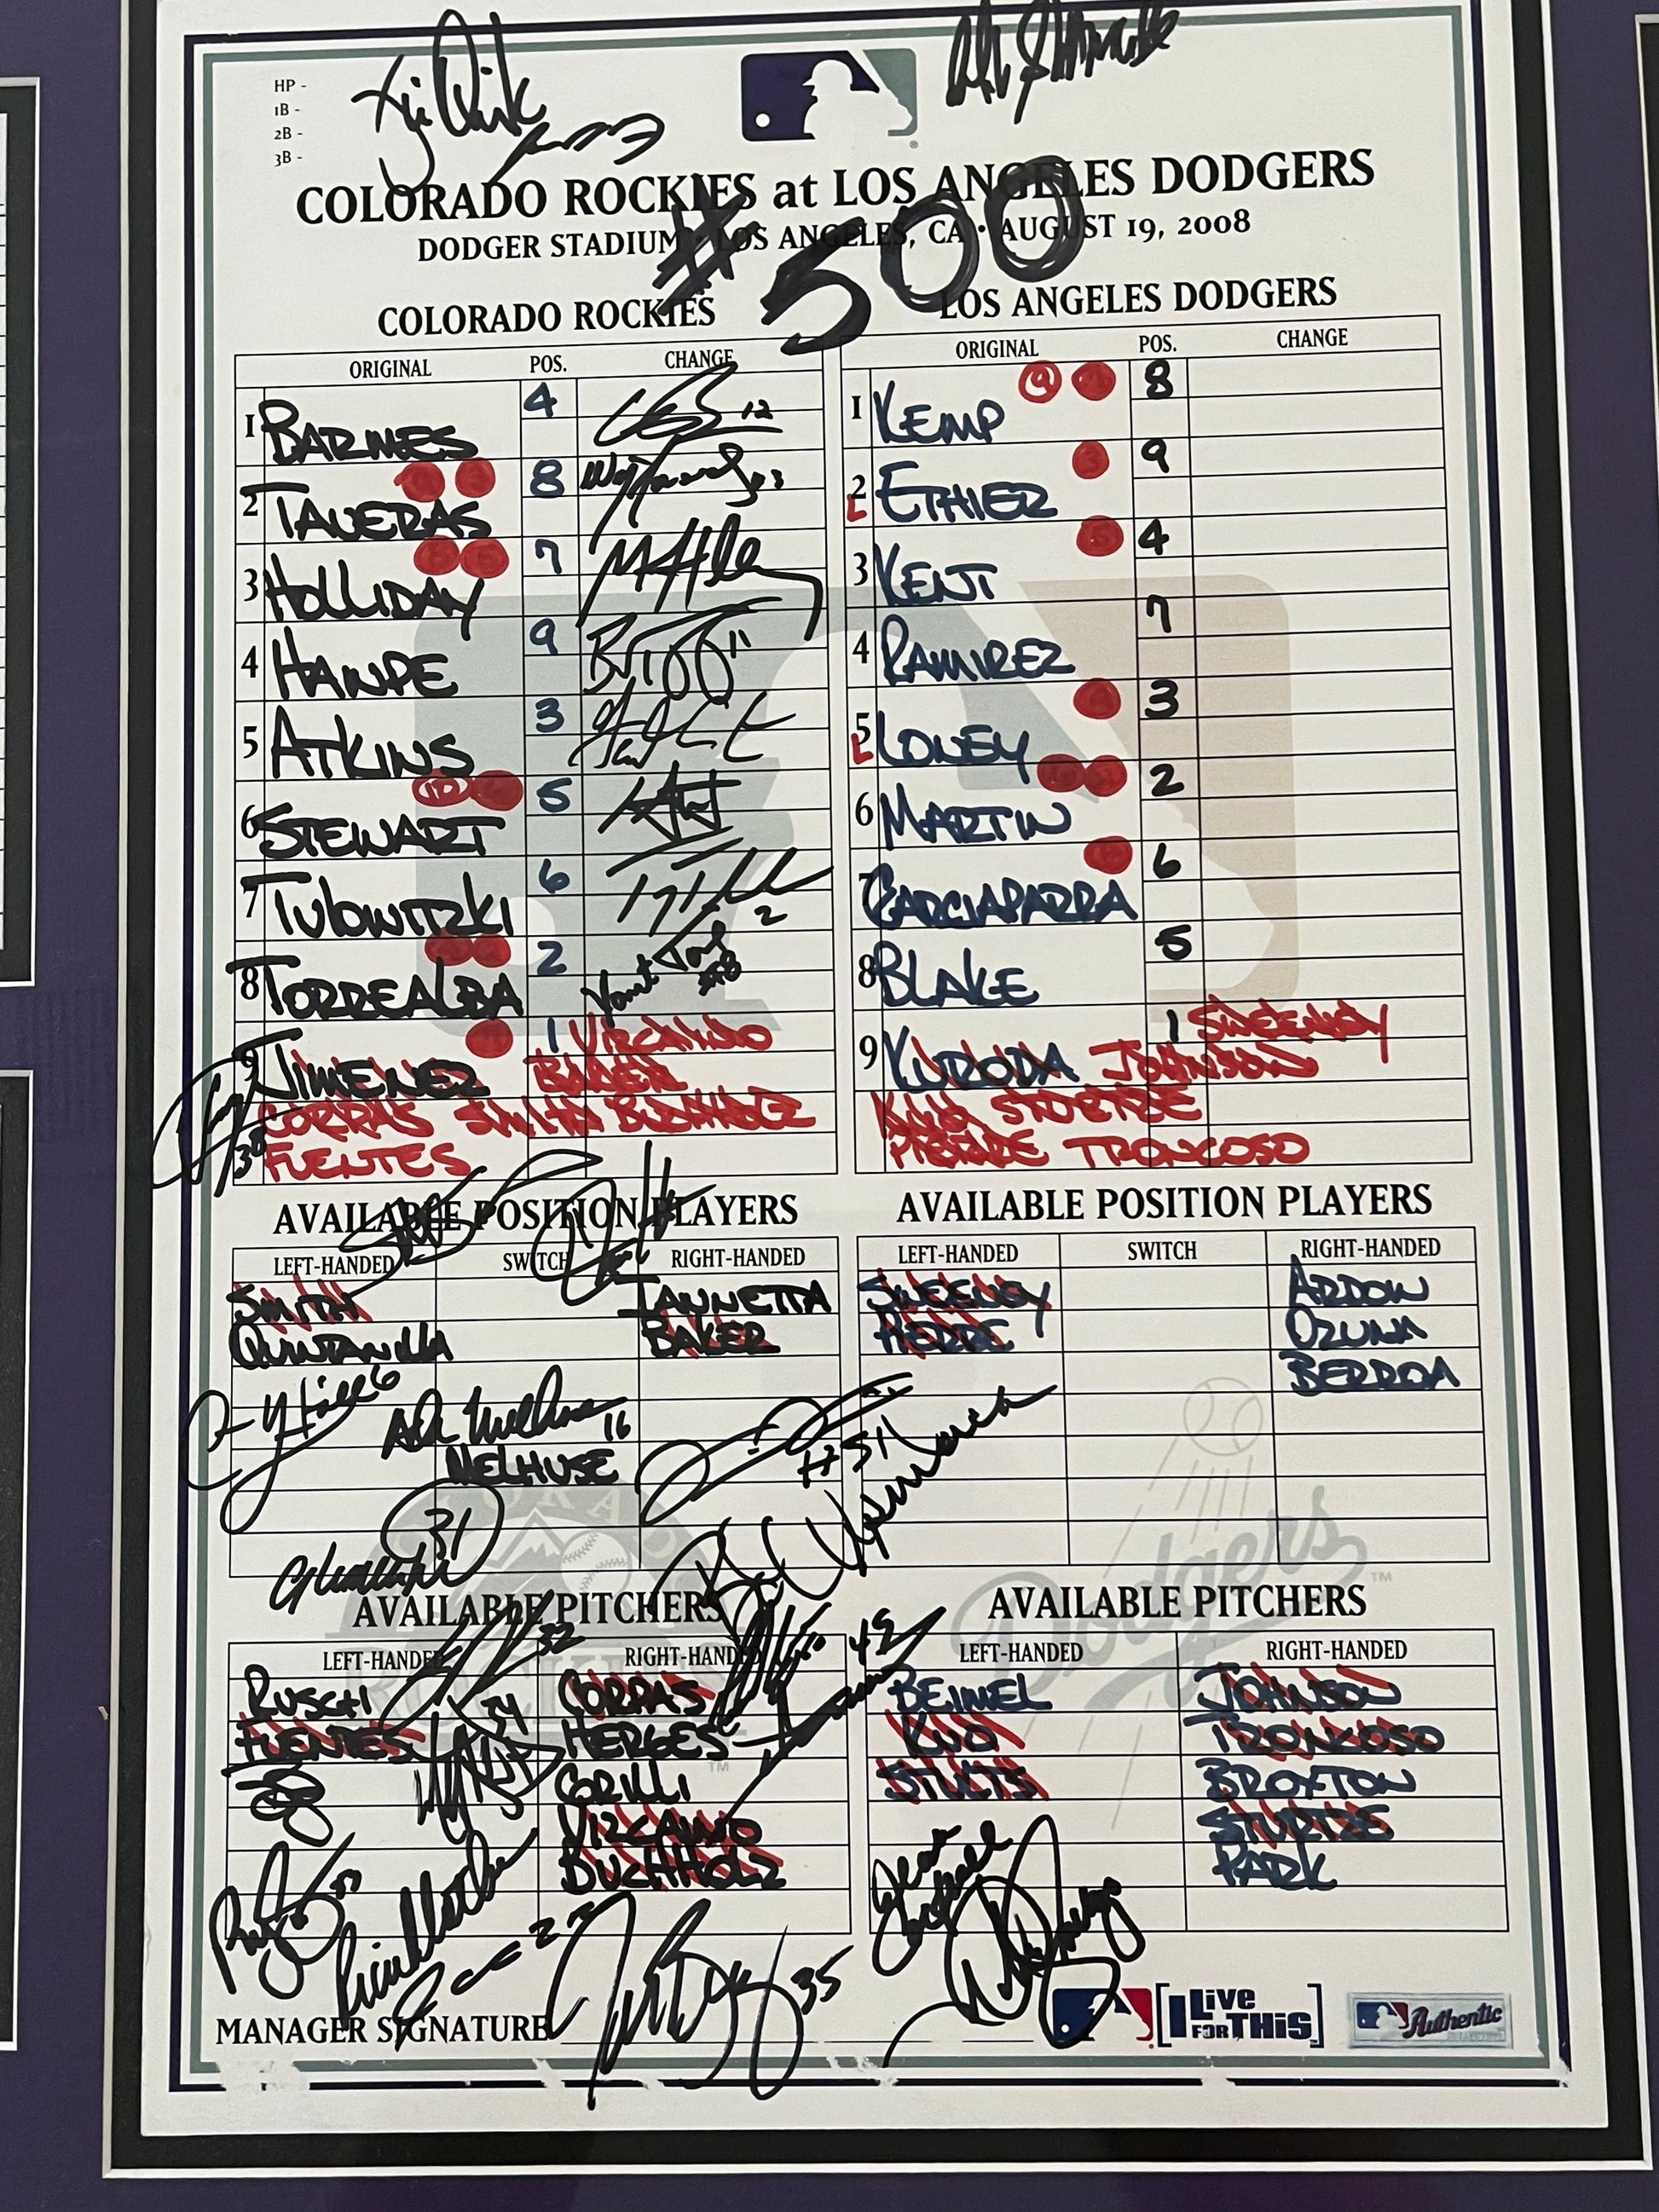 HP -
1B -
2B -
3B -
COLORADO ROCKIES at LOS ANGELES DODGERS
DODGER STADIUM • LOS ANGELES, CA • AUGUST 19, 2008
#500
COLORADO ROCKIES
ORIGINAL POS. CHANGE
1 BARMES 4 12
2 TAVERAS 8
3 HOLLIDAY 7
4 HAWPE 9 11
5 ATKINS 3
6 STEWART 5
7 TULOWITZKI 6 2
8 TORREALBA 2 #8
9 JIMENEZ 1 VIZCAINO
BAKER
CORPAS SMITH BUCHHOLZ
38 FUENTES
LOS ANGELES DODGERS
ORIGINAL POS. CHANGE
1 KEMP 8
2 L ETHIER 9
3 KENT 4
4 RAMIREZ 7
5 L LONEY 3
6 MARTIN 2
7 GARCIAPARRA 6
8 BLAKE 5
9 KURODA 1 SWEENEY
JOHNSON
KUO STURTZE
PIERRE TRONCOSO
AVAILABLE POSITION PLAYERS
LEFT-HANDED SWITCH RIGHT-HANDED
SMITH IANNETTA
QUINTANILLA BAKER
6
16
MELHUSE
31
#51
AVAILABLE POSITION PLAYERS
LEFT-HANDED SWITCH RIGHT-HANDED
SWEENEY ARDOIN
PIERRE OZUNA
BERROA
Dodgers
TM
AVAILABLE PITCHERS
LEFT-HANDED RIGHT-HANDED
RUSCH 32 CORPAS
FUENTES 54 HERGES
GRILLI
VIZCAINO
BUCHHOLZ
49
TM
AVAILABLE PITCHERS
LEFT-HANDED RIGHT-HANDED
BEIMEL JOHNSON
KUO TRONCOSO
STULTS BROXTON
STURTZE
PARK
MANAGER SIGNATURE
35
[I LiVe FOR THiS]
Authentic